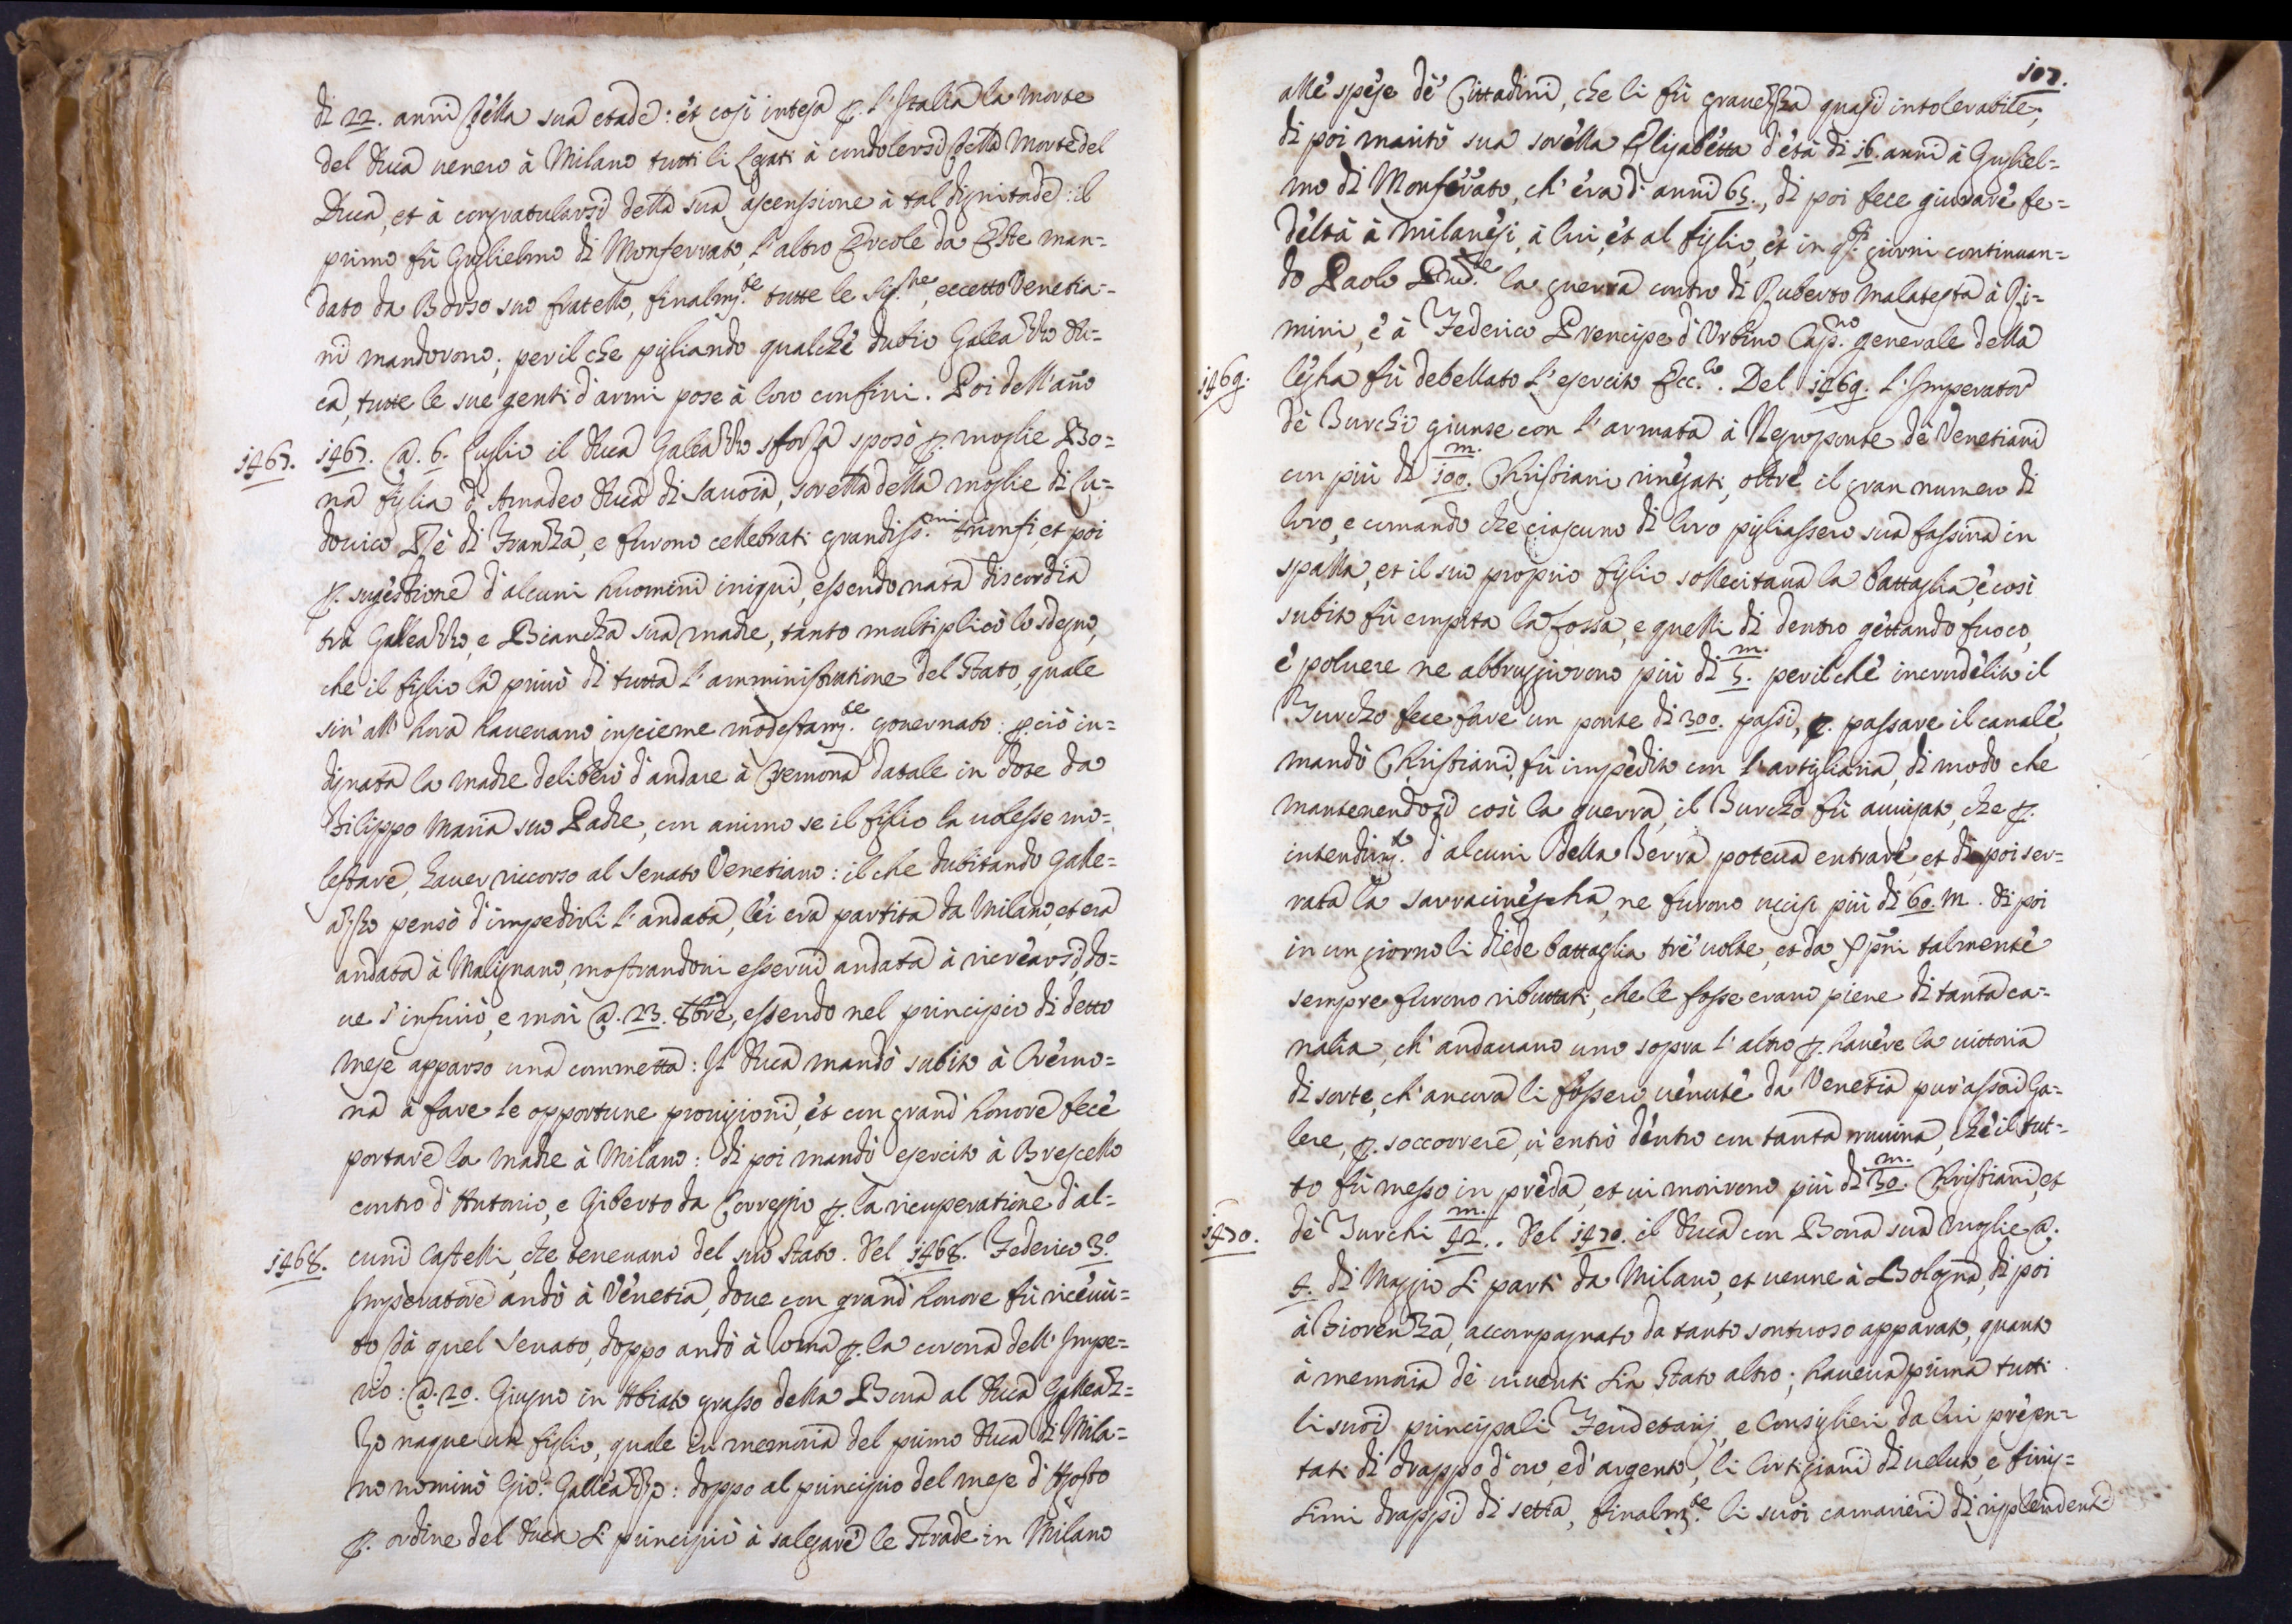 di 22. anni della sua etade: et così intesa p. l'Italia la Morte
del Duca venero à Milano tutti li Legati à condolersi della Morte del
Duca, et à congratularsi della sua ascenssione à tal dignitade: il
primo fù Guglielmo di Monferrato, l'altro Ercole da Este man=
dato da Borso suo fratello, finalm.te tutte le Sig.rie, eccetto Venetia=
ni mandorono; per il che pigliando qualche dubio Galeazzo Du=
ca, tutte le sue genti d'armi pose à loro confini. Poi dell'año
1467.
1467. @. 6. Luglio il Duca Galeazzo sforza sposò p. moglie Bo=
na figlia d'Amadeo Duca di Sauoia, sorella della moglie di Lu=
douico Rè di Franza, e furono cellebrati grandiss.mi trionfi, et poi
p. sugestione d'alcuni huomini iniqui, essendo nata discordia
trà Galleazzo, e Biancha sua madre, tanto multiplicò lo sdegno,
che il figlio la priuò di tutta l'amministratione del Stato, quale
sin' all' hora haueuano inscieme modestam.te gouernato: p. ciò in=
dignata la madre deliberò d'andare à Cremona datale in dote da
Filippo Maria suo Padre, con animo se il figlio la volesse mo=
lestare, hauer riccorso al Senato Venetiano: il che dubitando Galle=
azzo pensò d'impedirli l'andata, lei era partita da Milano, et era
andata à Malignano, mostrandoui esserui andata à ricrearsi, do=
ue s'infirmò, e morì @. 23. 8bre, essendo nel principio di detto
mese apparso una commetta: Il Duca mandò subito à Cremo=
na à fare le opportune prouisioni, et con grand' honore fece
portare la madre à Milano: di poi mandò esercito à Brescello
contro d'Antonio, e Giberto da Correggio p. la ricuperatione d'al=
1468.
cuni Castelli, che teneuano del suo Stato. Del 1468. Federico 3.o
Imperatore andò à Venetia, doue con grand' honore fù riceuu=
to dà quel Senato, doppo andò à Roma p. la corona dell' Impe=
rio: @. 20. Giugno in Abiato grasso della Bona al Duca Galleaz=
zo naque un figlio, quale in memoria del primo Duca di Mila=
no nominò Gio: Galleazzo: doppo al principio del mese d'Agosto
p. ordine del Duca si principiò à salgare le strade in Milano
107.
alle spese de' Cittadini, che li fù grauezza quasi intolerabile;
di poi maritò sua sorella Elisabetta d'età di 16. anni à Gugliel=
mo di Monferato, ch'era d'anni 65., di poi fece giurare fe=
deltà à milanesi, à lui, et al figlio, et in q.sti giorni continuan=
do Paolo Pred.te la guerra contro di Ruberto Malatesta à Ri=
mini, è à Federico Prencipe d'Vrbino Cap.no generale della
1469.
legha fù debellato l'esercito Ecc.lo. Del 1469. l'Imperator
de Turchi giunse con l'armata à Negroponte de Venetiani
con più di 100.m Christiani rinegati, oltre il gran numero di
loro, e comando che ciascuno di loro pigliassero sua fassina in
spalla, et il suo proprio figlio sollecitaua la battaglia, è così
subito fù empita la fossa, e quelli di dentro gettando fuoco,
è poluere ne abbruggiorono più di 5.m per il chè incrudelito il
Turcho fece fare un ponte di 300. passi, p. passare il canale,
mandò Christiani, fù impedito con l'artigliaria, di modo che
mantenendosi così la guerra, il Turcho fù auuisato, che p.
intendim.to d'alcuni della Terra poteua entrare, et di poi ser=
rata la sarracinescha, ne furono uccisi più di 60. M. di poi
in un giorno li diede battaglia trè uolte, et da Xp̃ni talmente
sempre furono ributtati, che le fosse erano piene di tanta ca=
nalia, ch'andauano uno sopra l'altro p. hauere la uittoria
di sorte, ch'ancora li fossero uenute da Venetia pur'assai Ga=
lere, p. soccorrere, ui entrò dentro con tanta rruuina, che il tut=
to fù messo in preda, et ui morirono più di 30.m Christiani, et
1470.
de Turchi 42.m. Del 1470. il Duca con Bona sua Moglie @.
4. di Maggio si partì da Milano, et uenne à Bologna, di poi
à Fiorenza, accompagnato da tanto sontuoso apparato, quanto
à memoria de uiuenti sia stato altro; haueua prima tutti
li suoi principali Feudetarij, e Consiglieri da lui presen=
tati di drappo d'oro, ed'argento, li Cortigiani di ueluto, e finis=
simi drappi di setta, finalm.te li suoi camarieri di risplendenti